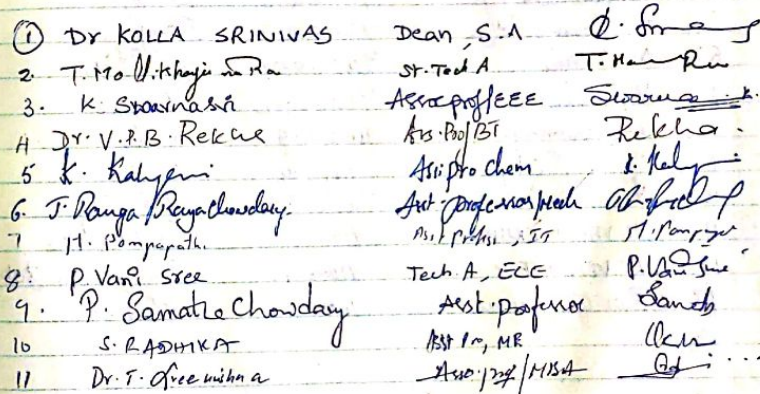 1 Dr KOLLA SRINIVAS Dean, S.A
2. T. Sr. Tech A T.
3. K. Swarnasri Assoc prof/EEE Swarna
4 Dr. V.P.B. Rekha Ass. Pro/BT Rekha.
5 K. Kalyani Assi pro Chem K. Kaly
6. J. Ranga Rayachowdary. Asst. professor/Mech
7 M. Pompapathi. Asst Profsr, IT M. Pompa
8. P. Vani Sree Tech A, ECE P. Vani Sree
9. P. Samatha Chowdary Asst. professor
10 S. RADHIKA Asst Pr, ME
11 Dr. T. Sreekrishna Asso. prof/MBA